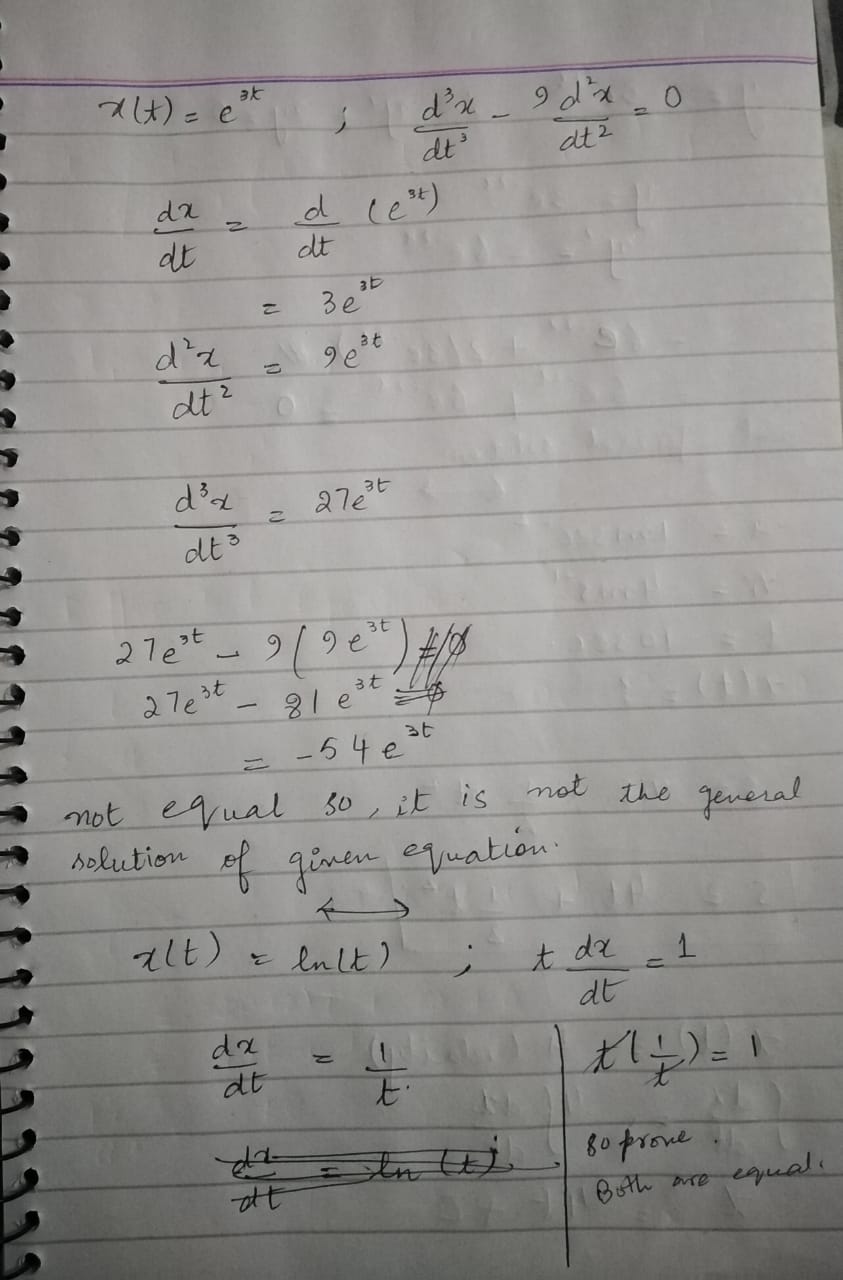 x(t) = e^{3t} ; d³x/dt³ - 9 d²x/dt² = 0
dx/dt = d/dt (e^{3t})
= 3e^{3t}
d²x/dt² = 9e^{3t}
d³x/dt³ = 27e^{3t}
27e^{3t} - 9(9e^{3t})
27e^{3t} - 81e^{3t}
= -54e^{3t}
not equal so, it is not the general
solution of given equation.
x(t) = ln(t) ; t dx/dt = 1
dx/dt = 1/t.
dx/dt = ln(t)
t(1/t) = 1
so prove.
Both are equal.